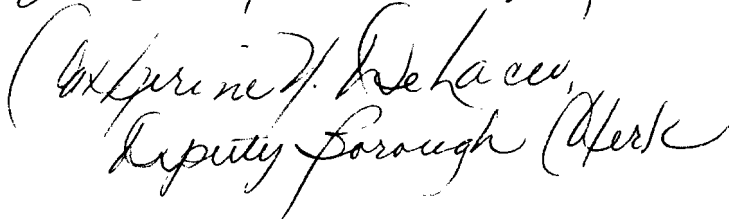 Catherine Y. DeLacey,
Deputy Borough Clerk